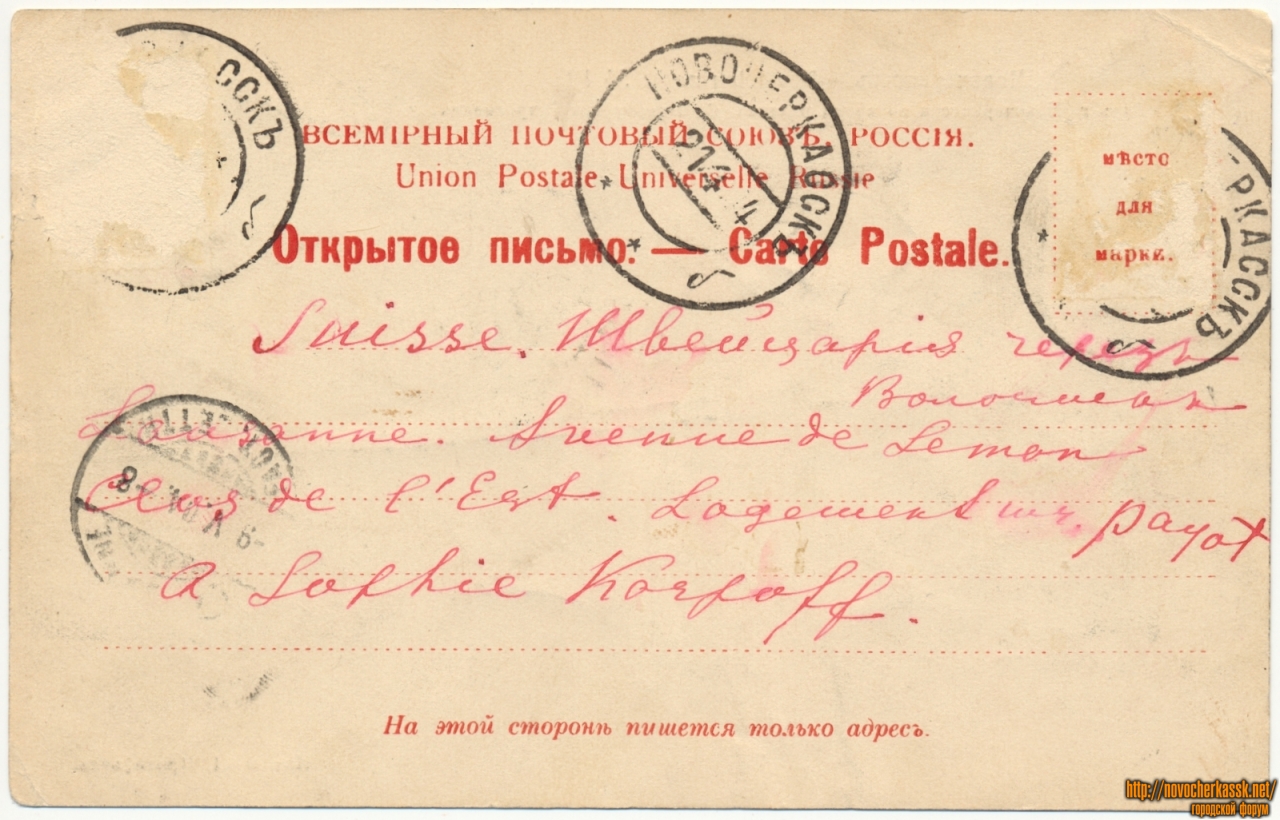 НОВОЧЕРКАССКЪ
ССКЪ
ЕРКАССКЪ
21 4
ВСЕМІРНЫЙ ПОЧТОВЫЙ СОЮЗЪ. РОССІЯ.
Union Postale Universelle Russie
мѣсто
для
марки.
Открытое письмо. — Carte Postale.
Suisse. Швейцарія черезъ
Волочискъ
Lausanne. Avenue de Leman
Clos de l'Est. Logement Payot
A Sophie Korpoff.
На этой сторонѣ пишется только адресъ.
http://novocherkassk.net/
городской форум